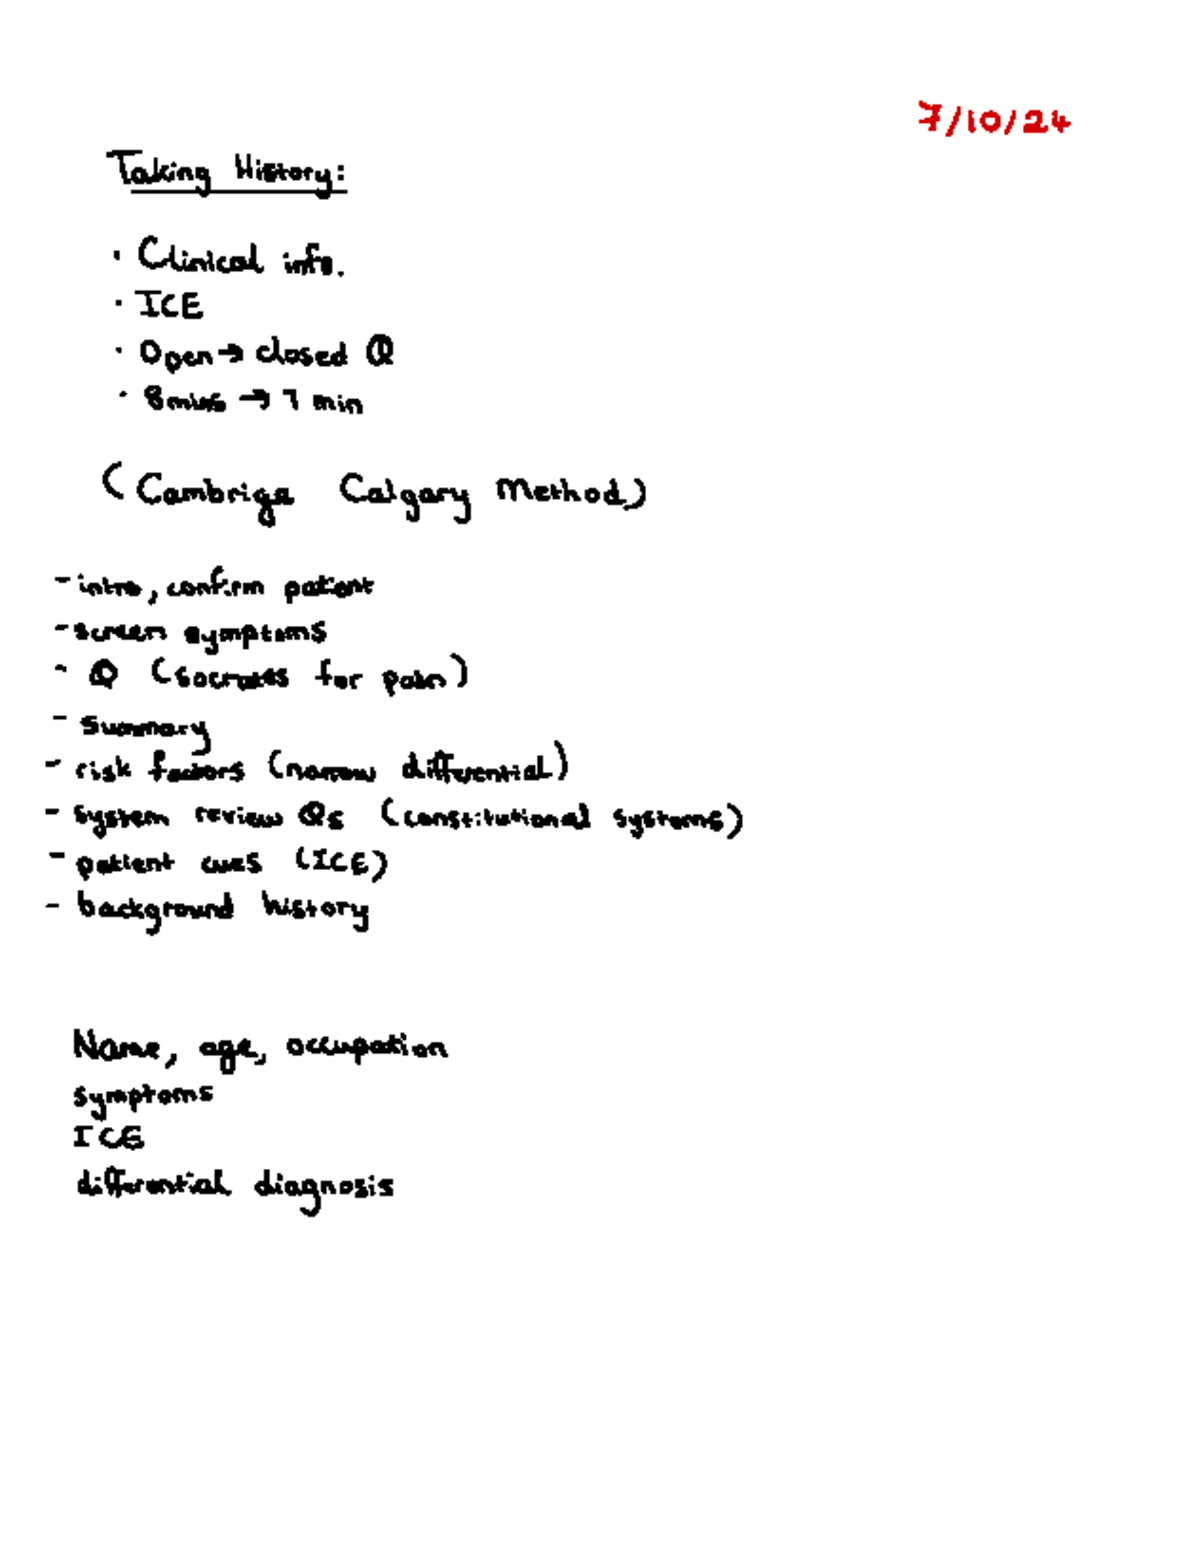 7/10/24
Taking History:
· Clinical info.
· ICE
· Open → closed Q
· 8mins → 7 min
(Cambrige Calgary Method)
- intro, confirm patient
- screen symptoms
- Q (socrates for pain)
- summary
- risk factors (narrow differential)
- system review Qs (constitutional systems)
- patient cues (ICE)
- background history
Name, age, occupation
symptoms
ICE
differential diagnosis